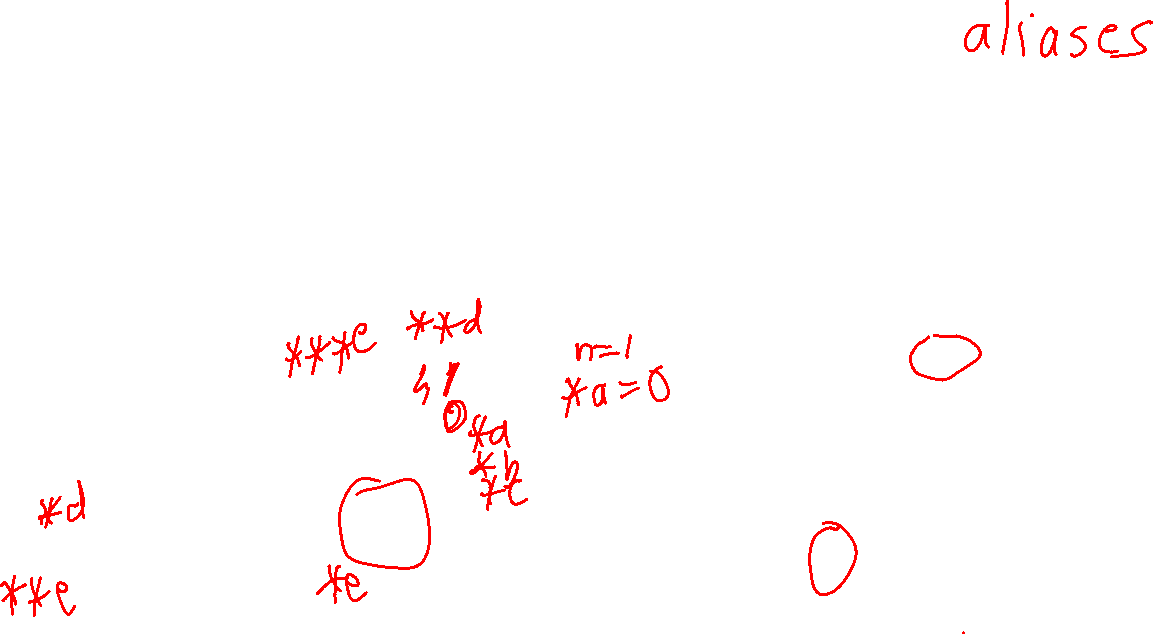 aliases
***e **d
n=1
*a=0
*a
*b
*c
*d
*e
**e